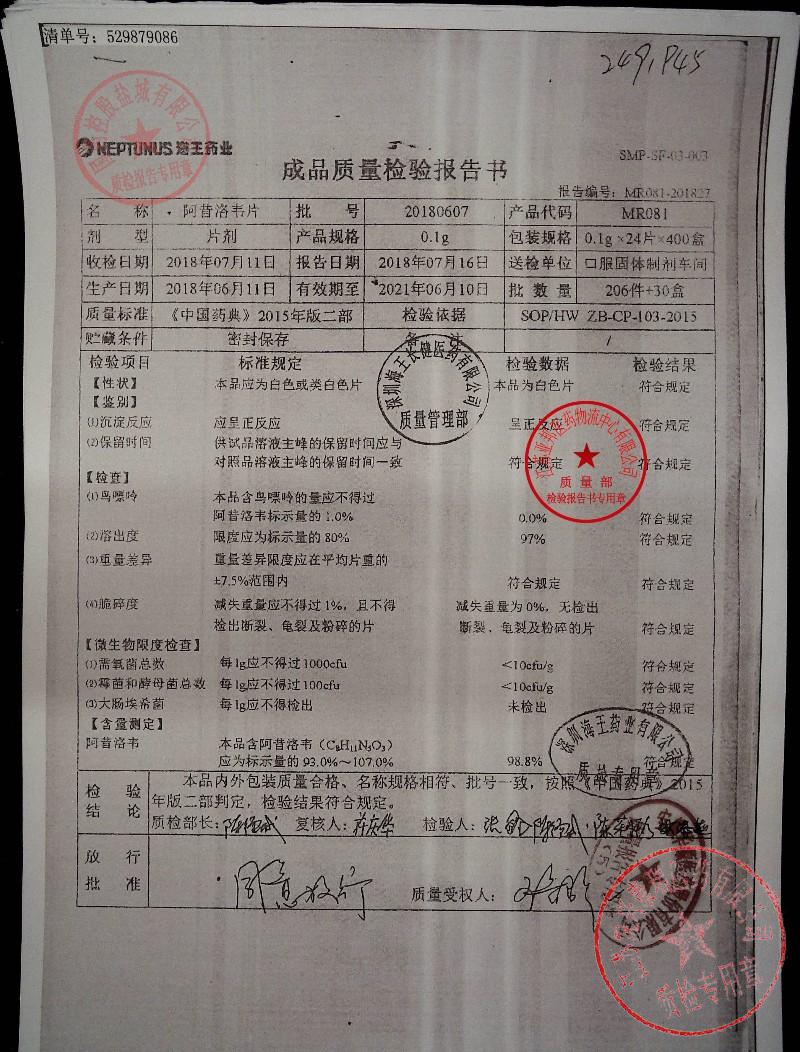 清单号：529879086
249,845
NEPTUNUS 海王药业
SMP-SF-03-003
成品质量检验报告书
报告编号：MR081-201827
名 称 阿昔洛韦片 批 号 20180607 产品代码 MR081
剂 型 片剂 产品规格 0.1g 包装规格 0.1g×24片×400盒
收检日期 2018年07月11日 报告日期 2018年07月16日 送检单位 口服固体制剂车间
生产日期 2018年06月11日 有效期至 2021年06月10日 批 数 量 206件+30盒
质量标准 《中国药典》2015年版二部 检验依据 SOP/HW ZB-CP-103-2015
贮藏条件 密封保存 /
检验项目 标准规定 检验数据 检验结果
【性状】 本品应为白色或类白色片 本品为白色片 符合规定
【鉴别】
⑴沉淀反应 应呈正反应 呈正反应 符合规定
⑵保留时间 供试品溶液主峰的保留时间应与
对照品溶液主峰的保留时间一致 符合规定 符合规定
【检查】
⑴鸟嘌呤 本品含鸟嘌呤的量应不得过
阿昔洛韦标示量的1.0% 0.0% 符合规定
⑵溶出度 限度应为标示量的80% 97% 符合规定
⑶重量差异 重量差异限度应在平均片重的
±7.5%范围内 符合规定 符合规定
⑷脆碎度 减失重量应不得过1%，且不得 减失重量为0%，无检出
检出断裂、龟裂及粉碎的片 断裂、龟裂及粉碎的片 符合规定
【微生物限度检查】
⑴需氧菌总数 每1g应不得过1000cfu <10cfu/g 符合规定
⑵霉菌和酵母菌总数 每1g应不得过100cfu <10cfu/g 符合规定
⑶大肠埃希菌 每1g应不得检出 未检出 符合规定
【含量测定】
阿昔洛韦 本品含阿昔洛韦（C₈H₁₁N₅O₃）
应为标示量的93.0%～107.0% 98.8% 符合规定
检 验 本品内外包装质量合格、名称规格相符、批号一致，按照《中国药典》2015
结 论 年版二部判定，检验结果符合规定。
质检部长： 复核人： 检验人：
放 行
批 准 同意放行 质量受权人：
控股盐城有限公司
质检报告专用章
深圳海王长健医药有限公司
质量管理部
医药物流中心有限公司
质量部
检验报告书专用章
深圳海王药业有限公司
质检专用章
(5)
质检专用章